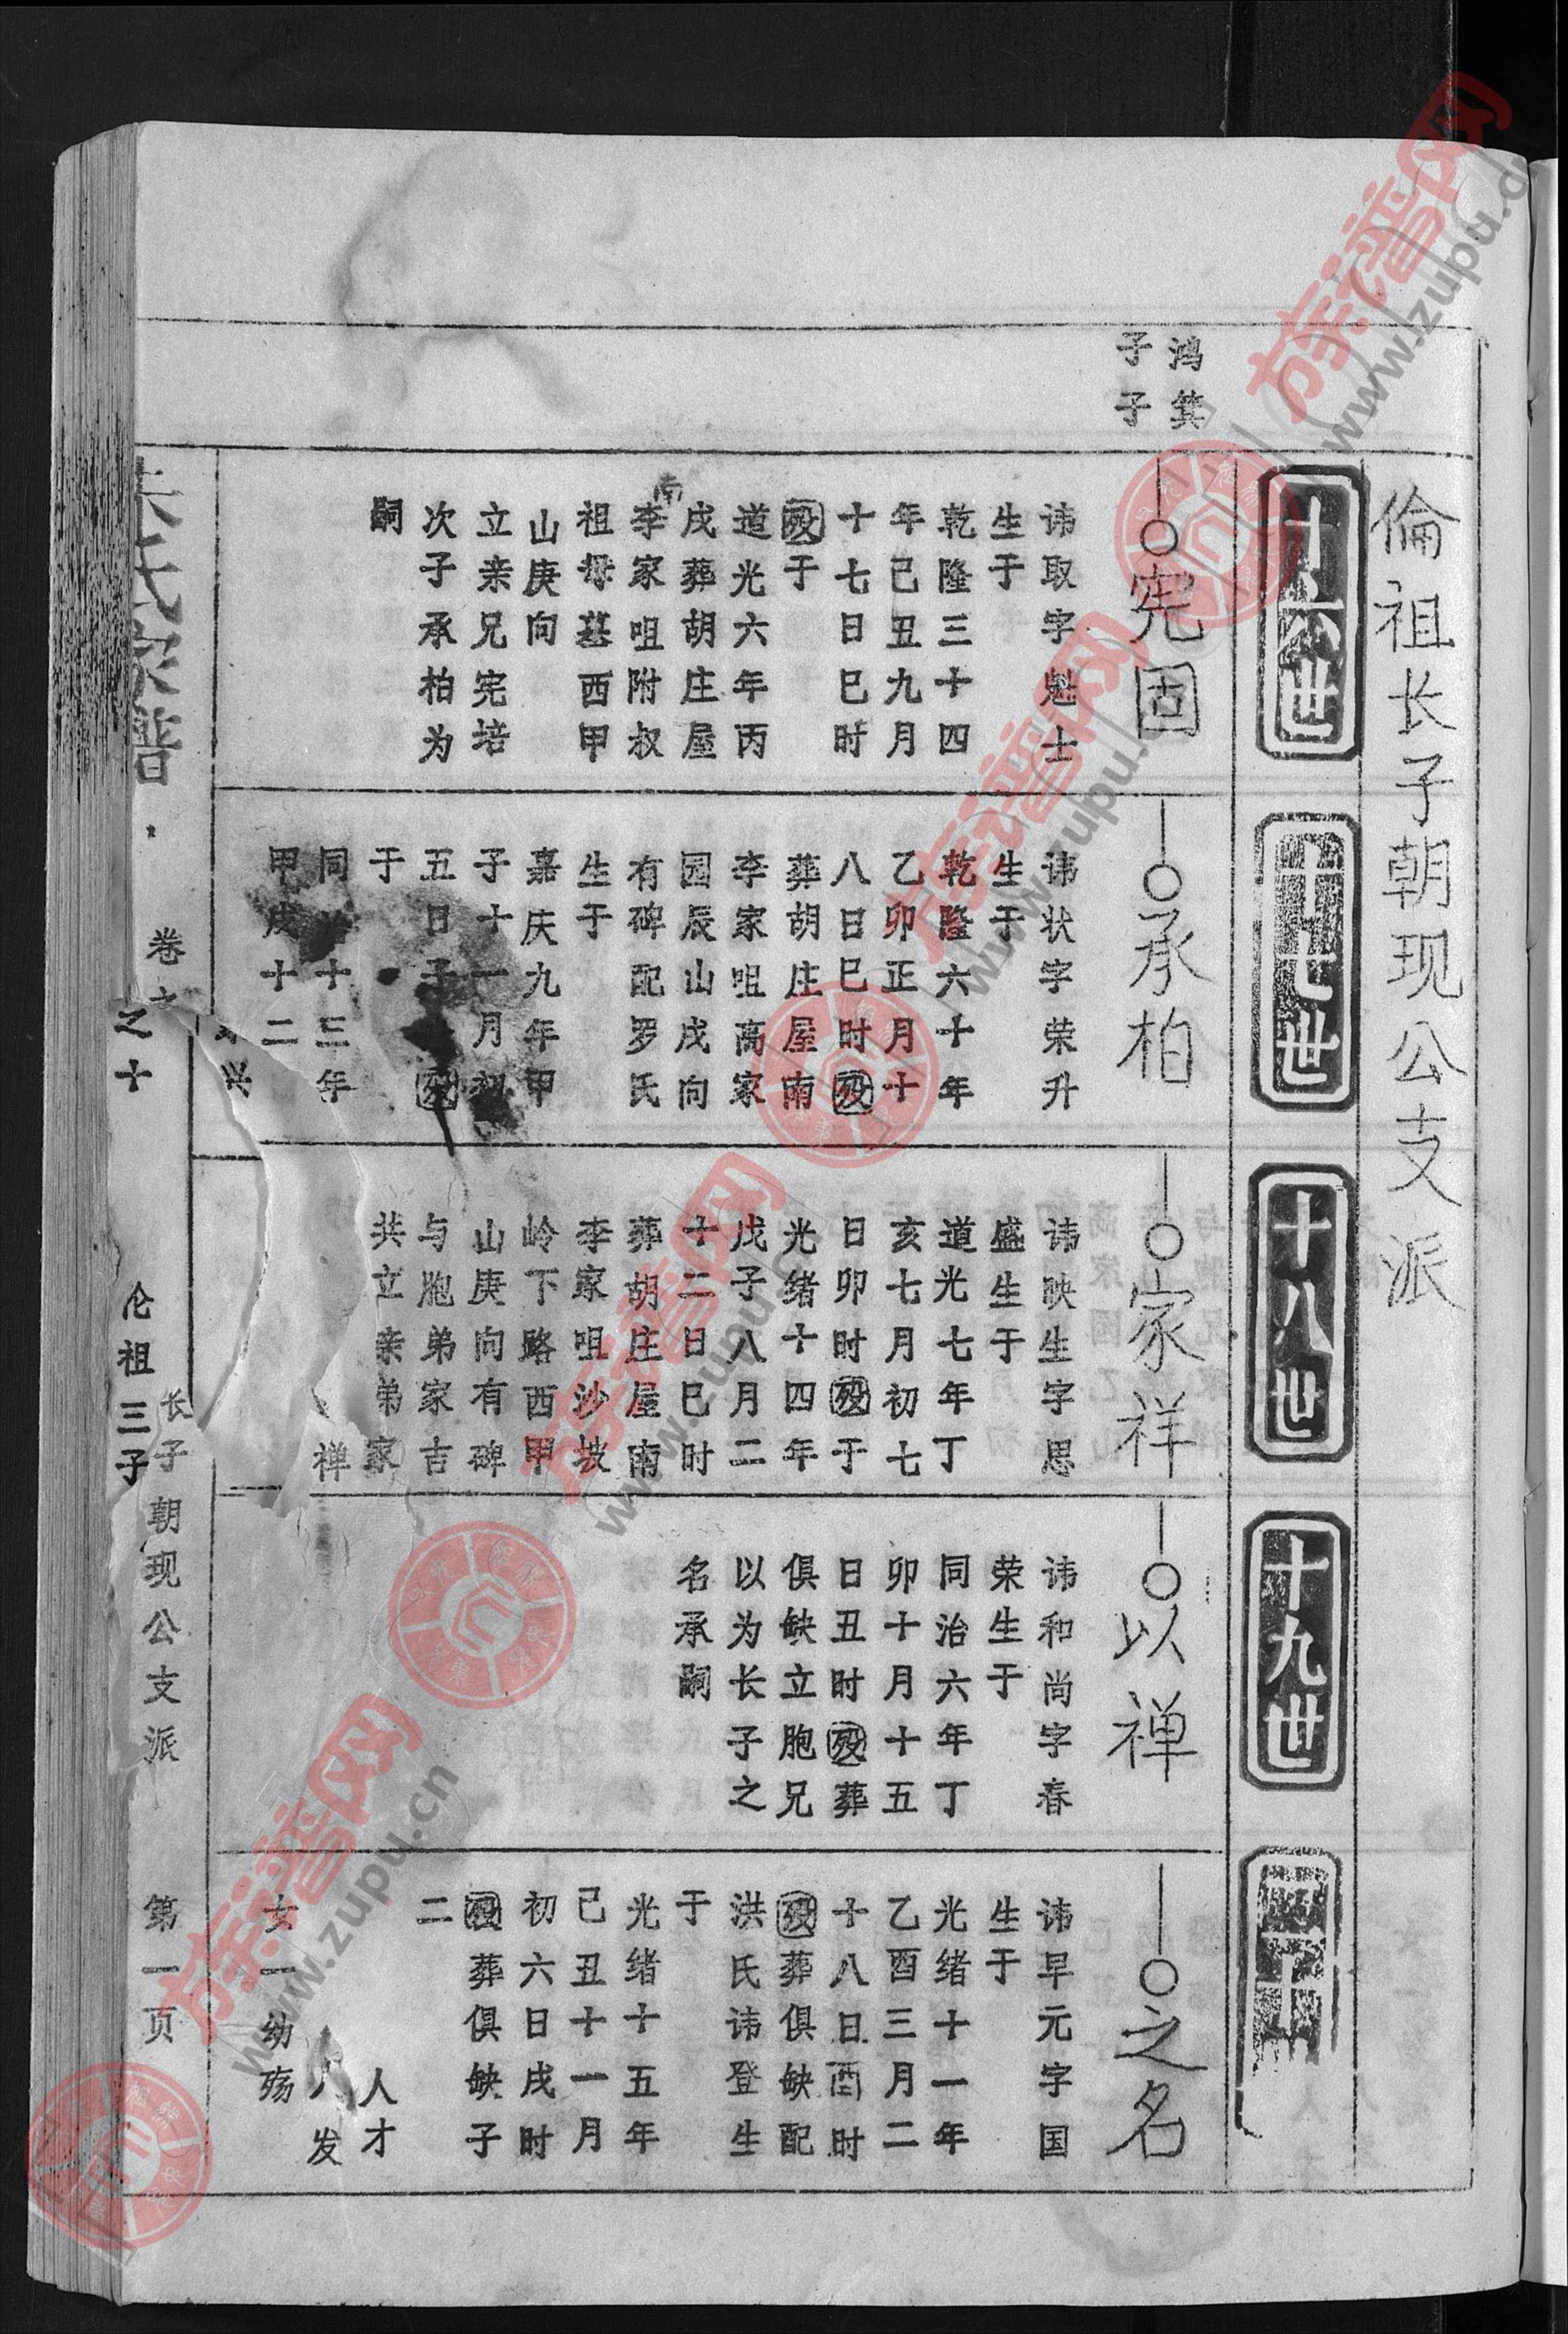 倫祖长子朝现公支派
十六世
十七世
十八世
十九世
鸿箕
子子
宪固
讳取字魁士
生于
乾隆三十四
年己丑九月
十七日巳时
殁于
道光六年丙
戌葬胡庄屋
南
李家咀附叔
祖母墓西甲
山庚向
立亲兄宪培
次子承柏为
嗣
承柏
讳状字荣升
生于
乾隆六十年
乙卯正月十
八日巳时殁
葬胡庄屋南
李家咀高家
园辰山戌向
有碑配罗氏
生于
嘉庆九年甲
子十一月初
五日子 殁
于
同 十三年
甲戌十二
兴
家祥
讳映生字思
盛生于
道光七年丁
亥七月初七
日卯时殁于
光绪十四年
戊子八月二
十二日巳时
葬胡庄屋南
李家咀沙坡
岭下路西甲
山庚向有碑
与胞弟家吉
共立亲弟家
禅
以禅
讳和尚字春
荣生于
同治六年丁
卯十月十五
日丑时殁葬
俱缺立胞兄
以为长子之
名承嗣
之名
讳早元字国
生于
光绪十一年
乙酉三月二
十八日酉时
殁葬俱缺配
洪氏讳登生
于
光绪十五年
己丑十一月
初六日戌时
殁葬俱缺子
二
人才
人发
女一幼殇
氏家谱
卷之
之十
伦祖三子
长子朝现公支派
第一页
族谱网
www.zupu.cn
族谱网
www.zupu.cn
族谱网
www.zupu.cn
族谱网
www.zupu.cn